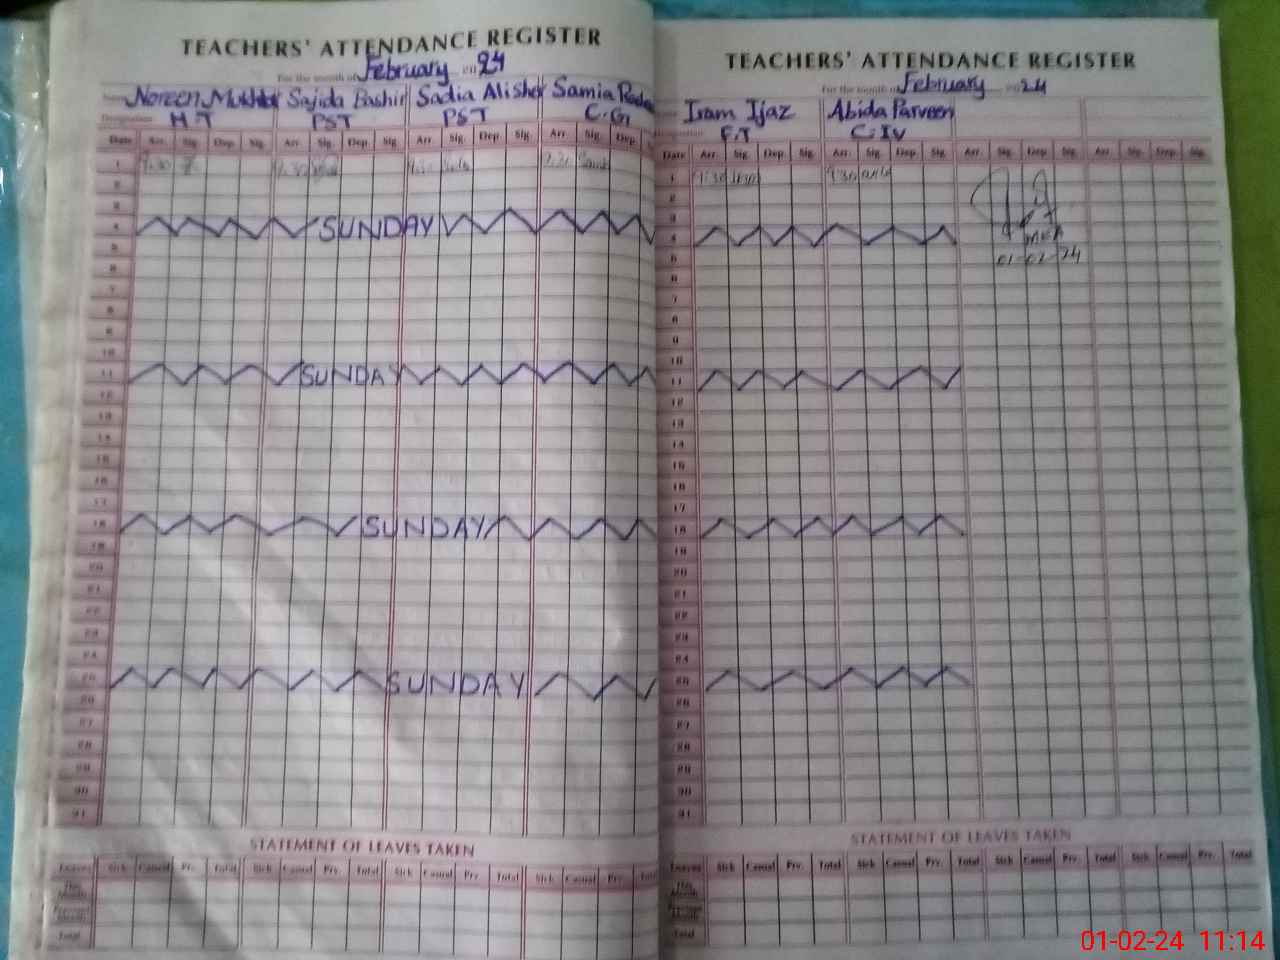 TEACHERS' ATTENDANCE REGISTER
For the month of February 24
Noreen Mukhtar Sajida Bashir Sadia Alisher Samia
Designation H.T PST PST C.G1
Date Arr. Sig. Dep. Sig. Arr. Sig. Dep. Sig. Arr. Sig. Dep. Sig. Arr. Sig. Dep.
1 9:30
2
3
4 SUNDAY
5
6
7
8
9
10
11 SUNDAY
12
13
14
15
16
17
18 SUNDAY
19
20
21
22
23
24
25 SUNDAY
26
27
28
29
30
31
STATEMENT OF LEAVES TAKEN
Leaves Sick Casual Prv. Total Sick Casual Prv. Total Sick Casual Prv. Total Sick Casual Prv. Total
This Month
Previous Month
Total
TEACHERS' ATTENDANCE REGISTER
For the month of February 24
Iram Ijaz Abida Parveen
Designation C.IV
Date Arr. Sig. Dep. Sig. Arr. Sig. Dep. Sig. Arr. Sig. Dep. Sig. Arr. Sig. Dep. Sig.
1 9:30 9:30
2
3
4
5 01-02-24
6
7
8
9
10
11
12
13
14
15
16
17
18
19
20
21
22
23
24
25
26
27
28
29
30
31
STATEMENT OF LEAVES TAKEN
Leaves Sick Casual Prv. Total Sick Casual Prv. Total Sick Casual Prv. Total Sick Casual Prv. Total
This Month
Previous Month
Total
01-02-24 11:14